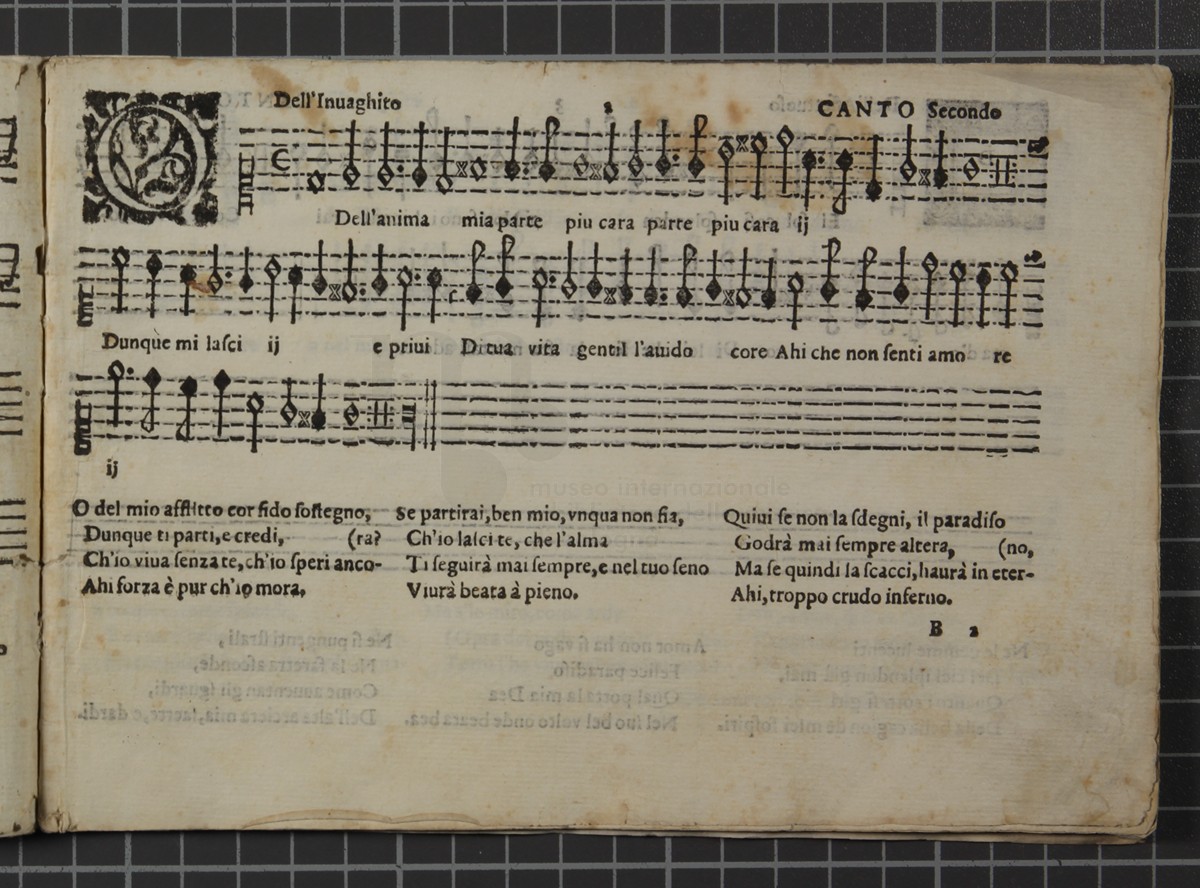 Dell'Inuaghito 2 CANTO Secondo
O Dell'anima mia parte piu cara parte piu cara ij
Dunque mi laſci ij e priui Di tua vita gentil l'auido core Ahi che non ſenti amo re
ij
O del mio afflitto cor fido ſoſtegno,
Dunque ti parti, e credi, (ra?
Ch'io viua ſenza te, ch'io ſperi anco-
Ahi forza è pur ch'io mora.
Se partirai, ben mio, vnqua non fia,
Ch'io laſci te, che l'alma
Ti ſeguirà mai ſempre, e nel tuo ſeno
Viurà beata à pieno.
Quiui ſe non la ſdegni, il paradiſo
Godrà mai ſempre altera, (no,
Ma ſe quindi la ſcacci, haurà in eter-
Ahi, troppo crudo inferno.
B 2
museo internazionale